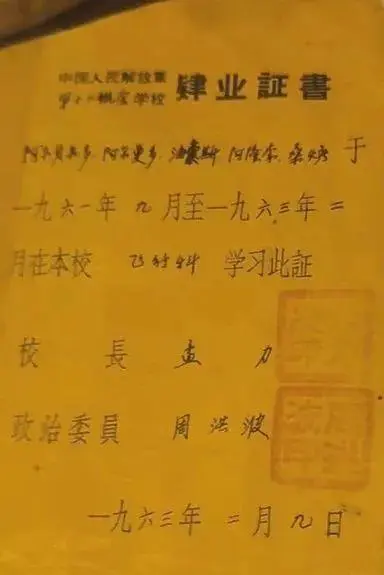 中国人民解放軍
第十二航空学校 肄业証書
阿尔贝尔多 阿尔曼多 阿隆索 于
一九六一年九月至一九六三年二
月在本校 飞行科 学习此証
校長 孟力
政治委員 周洪波
一九六三年二月九日